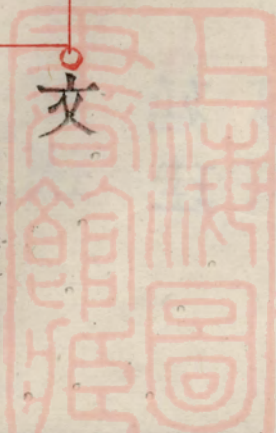 文
上海圖
書館藏